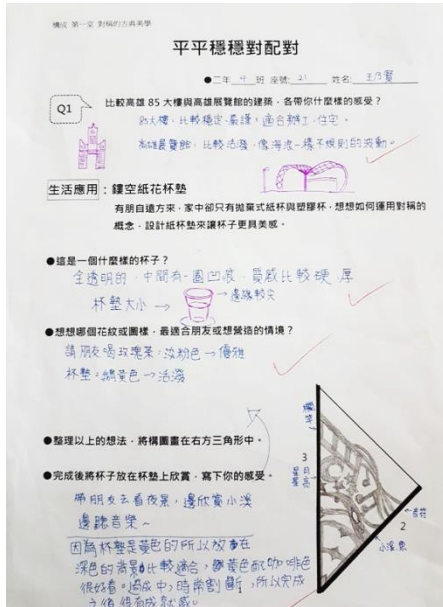 構成 第一堂 對稱的古典美學
平平穩穩對配對
●二年 4 班 座號: 21 姓名:
Q1
比較高雄 85 大樓與高雄展覽館的建築，各帶你什麼樣的感受？
85大樓：比較穩定、嚴謹，適合辦工、住宅。
高雄展覽館：比較活潑，像海浪一樣不規則的波動。
生活應用：鏤空紙花杯墊
有朋自遠方來，家中卻只有拋棄式紙杯與塑膠杯，想想如何運用對稱的
概念，設計紙杯墊來讓杯子更具美感。
●這是一個什麼樣的杯子？
全透明的，中間有一圈凹痕，質感比較硬、厚
杯墊大小 → → 邊緣較尖
●想想哪個花紋或圖樣，最適合朋友或想營造的情境？
請朋友喝玫瑰茶：淡粉色→優雅
杯墊：鵝黃色→活潑
●整理以上的想法，將構圖畫在右方三角形中。
3
月亮
星星
●完成後將杯子放在杯墊上欣賞，寫下你的感受。
2
小溪
帶朋友去看夜景，邊欣賞小溪
邊聽音樂～
因為杯墊是黃色的所以放在
深色的背景比較適合，鵝黃色配咖啡色
很好看。過程中，時常割斷，所以完成
之後很有成就感。
1